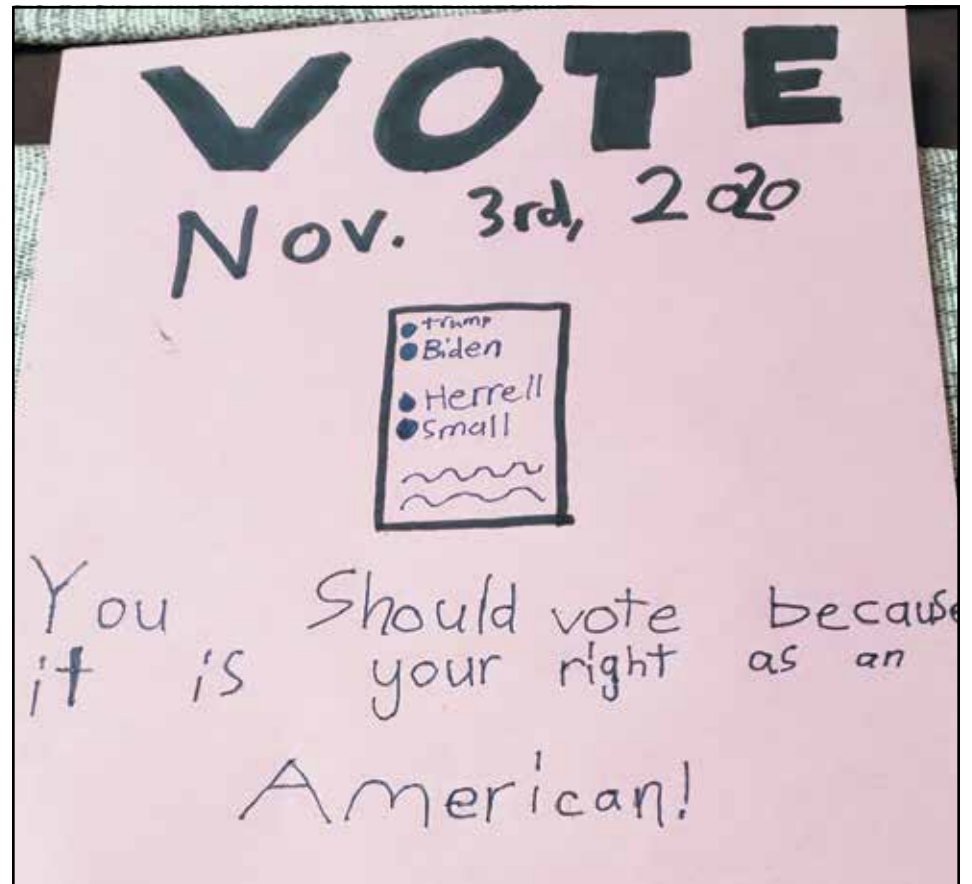 VOTE
Nov. 3rd, 2020
trump
Biden
Herrell
Small
You Should vote because
it is your right as an
American!